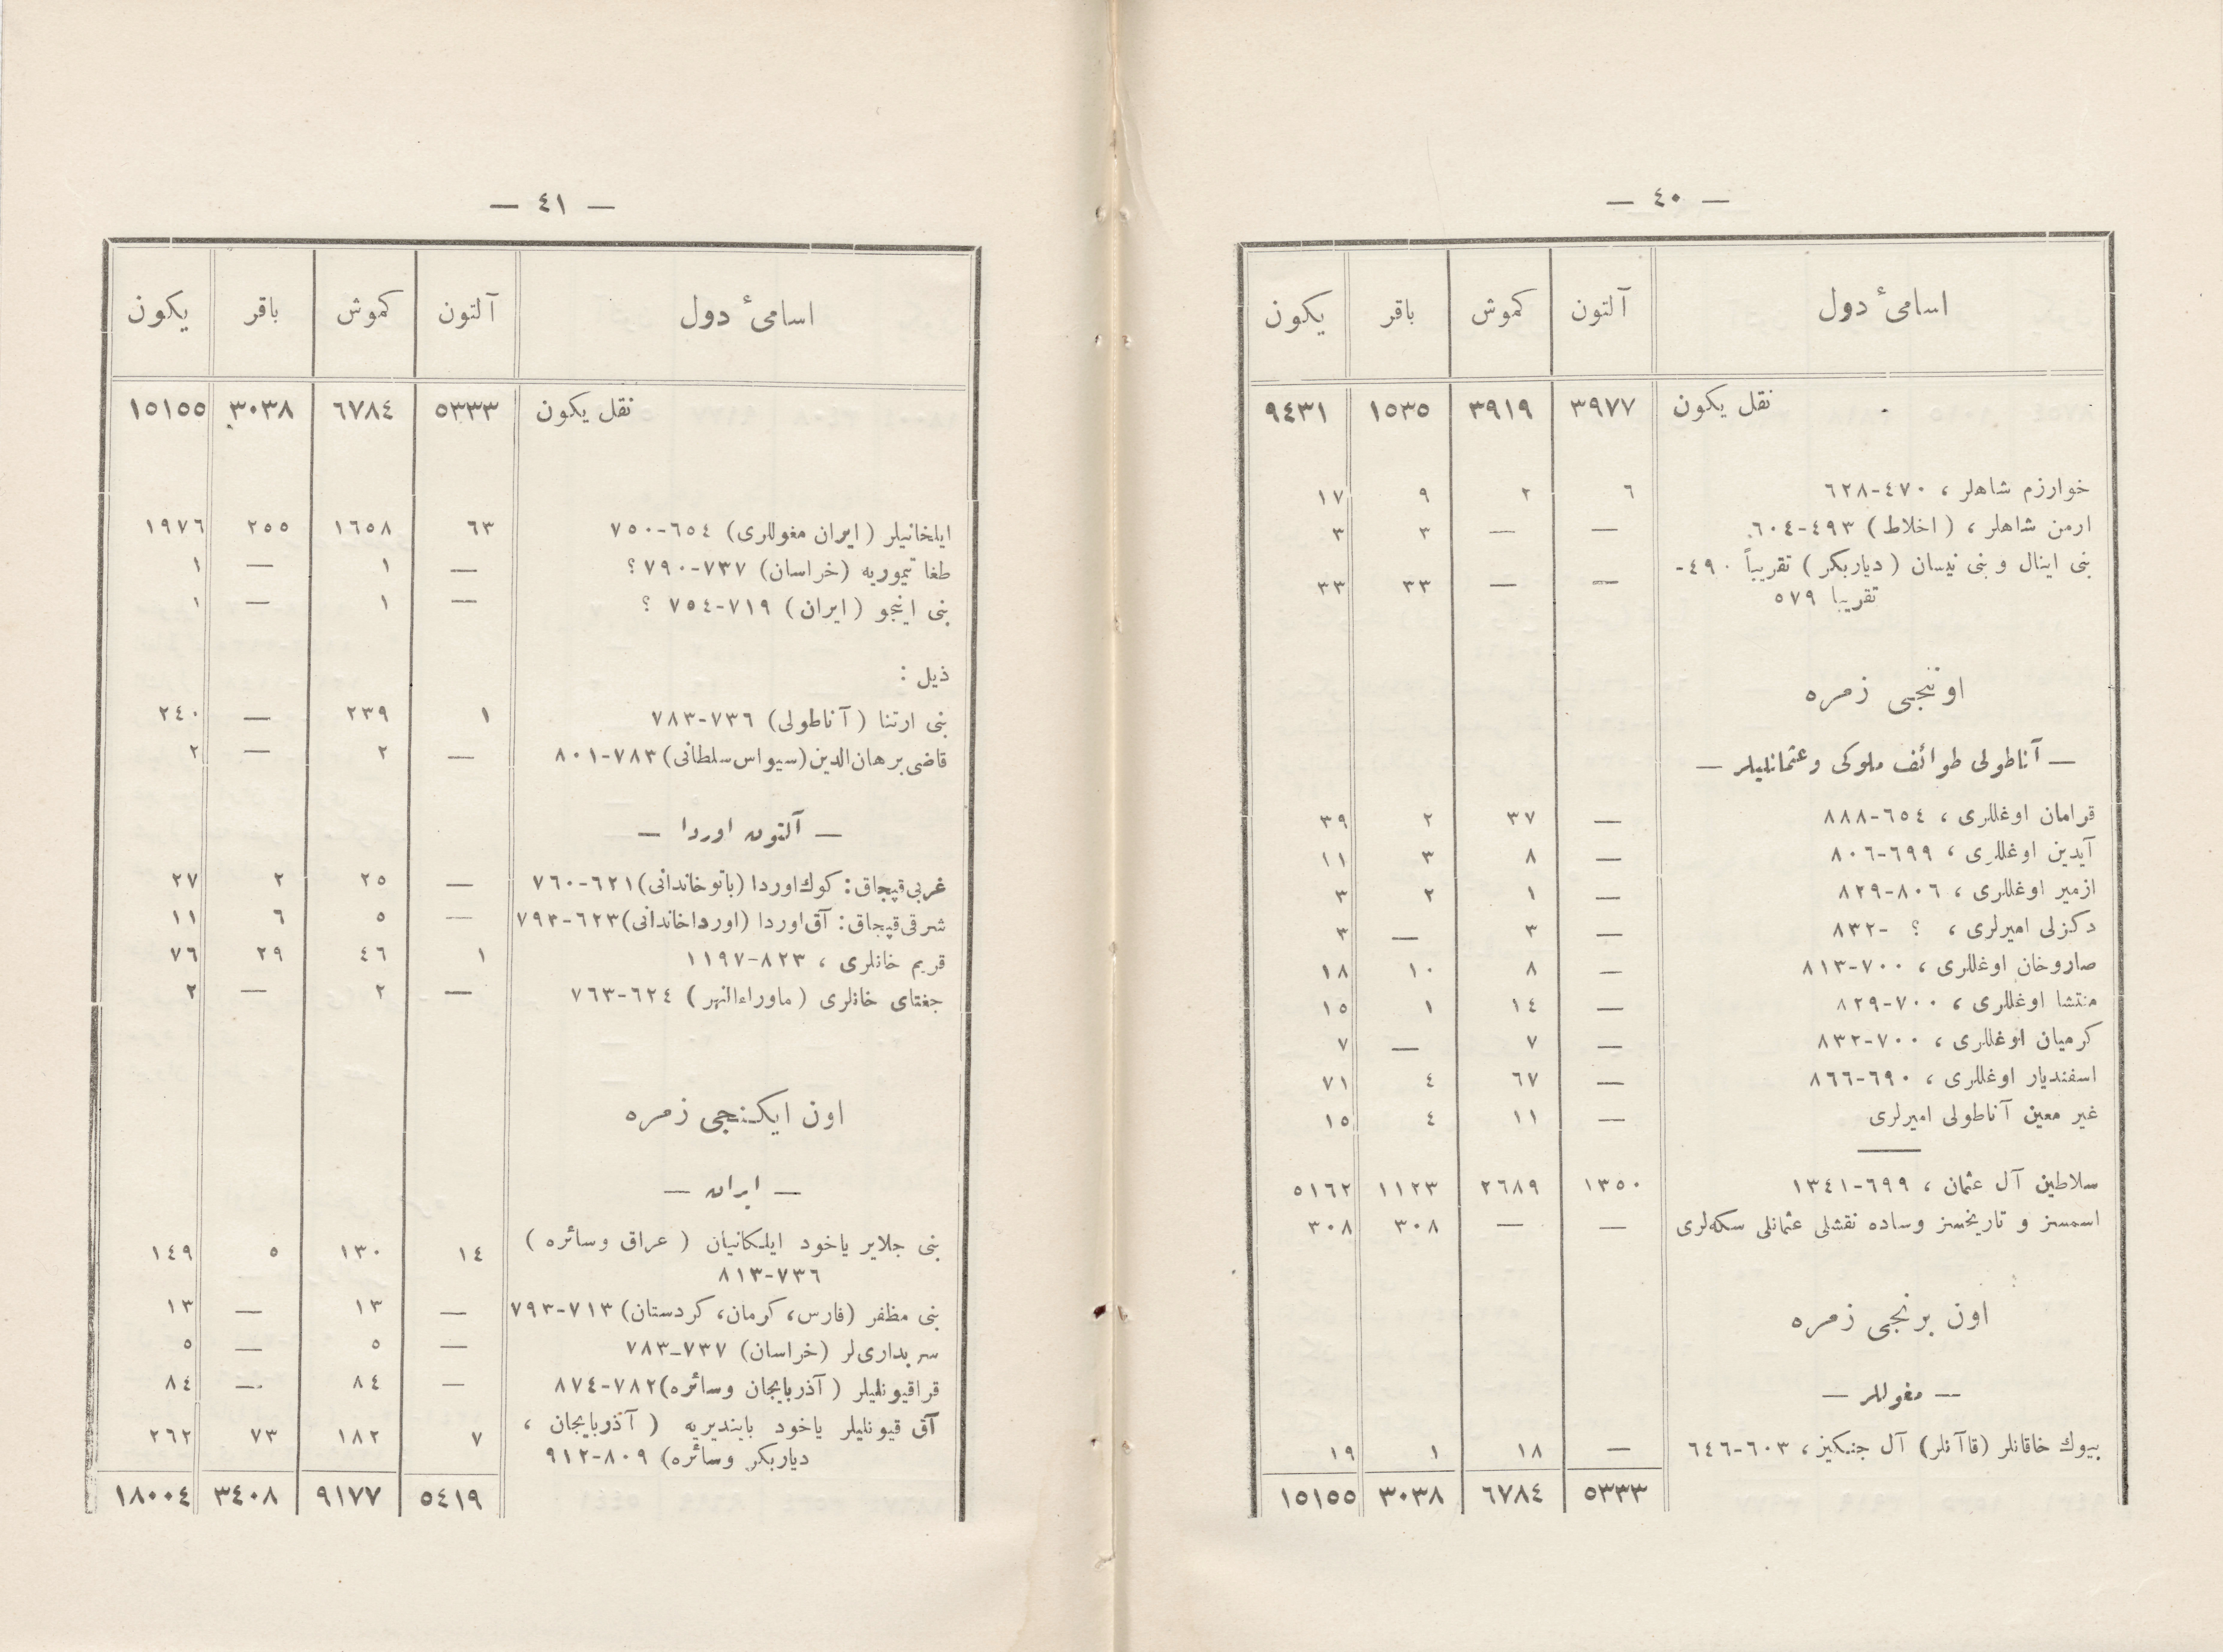 — ٤٠ —
اسامیٔ دول آلتون كموش باقر يكون
نقل يكون ٣٩٧٧ ٣٩١٩ ١٥٣٥ ٩٤٣١
خوارزم شاهلر ، ٤٧٠-٦٢٨ ٦ ٢ ٩ ١٧
ارمن شاهلر ، ( اخلاط ) ٤٩٣-٦٠٤ — — ٣ ٣
بنى اينال و بنى نيسان ( دياربكر ) تقريباً ٤٩٠- — — ٣٣ ٣٣
تقريبا ٥٧٩
اوننجى زمره
— آناطولى طوائف ملوكى وعثمانليلر —
قرامان اوغللرى ، ٦٥٤-٨٨٨ — ٣٧ ٢ ٣٩
آيدين اوغللرى ، ٦٩٩-٨٠٦ — ٨ ٣ ١١
ازمير اوغللرى ، ٨٠٦-٨٢٩ — ١ ٢ ٣
دكزلى اميرلرى ، ؟ -٨٣٢ — ٣ — ٣
صاروخان اوغللرى ، ٧٠٠-٨١٣ — ٨ ١٠ ١٨
منتشا اوغللرى ، ٧٠٠-٨٢٩ — ١٤ ١ ١٥
كرميان اوغللرى ، ٧٠٠-٨٣٢ — ٧ — ٧
اسفنديار اوغللرى ، ٦٩٠-٨٦٦ — ٦٧ ٤ ٧١
غير معين آناطولى اميرلرى — ١١ ٤ ١٥
سلاطين آل عثمان ، ٦٩٩-١٣٤١ ١٣٥٠ ٢٦٨٩ ١١٢٣ ٥١٦٢
اسمسز و تاريخسز وساده نقشلى عثمانلى سكه‌لرى — — ٣٠٨ ٣٠٨
اون برنجى زمره
— مغوللر —
بيوك خاقانلر (قاآنلر) آل جنكيز ، ٦٠٣-٦٤٦ — ١٨ ١ ١٩
٥٣٣٣ ٦٧٨٤ ٣٠٣٨ ١٥١٥٥
— ٤١ —
اسامیٔ دول آلتون كموش باقر يكون
نقل يكون ٥٣٣٣ ٦٧٨٤ ٣٠٣٨ ١٥١٥٥
ايلخانيلر ( ايران مغوللرى) ٦٥٤-٧٥٠ ٦٣ ١٦٥٨ ٢٥٥ ١٩٧٦
طغا تيموريه (خراسان) ٧٣٧-٧٩٠ ؟ — ١ — ١
بنى اينجو ( ايران ) ٧١٩-٧٥٤ ؟ — ١ — ١
ذيل :
بنى ارتنا ( آناطولى) ٧٣٦-٧٨٣ ١ ٢٣٩ — ٢٤٠
قاضى برهان‌الدين (سيواس سلطانى) ٧٨٣-٨٠١ — ٢ — ٢
— آلتون اوردا —
غربى قپچاق : كوك اوردا (باتو خاندانى) ٦٢١-٧٦٠ — ٢٥ ٢ ٢٧
شرقى قپچاق : آق اوردا (اوردا خاندانى) ٦٢٣-٧٩٣ — ٥ ٦ ١١
قريم خانلرى ، ٨٢٣-١١٩٧ ١ ٤٦ ٢٩ ٧٦
جغتاى خانلرى ( ماوراءالنهر ) ٦٢٤-٧٦٣ — ٢ — ٢
اون ايكنجى زمره
— ايران —
بنى جلاير ياخود ايلكانيان ( عراق وسائره ) ١٤ ١٣٠ ٥ ١٤٩
٧٣٦-٨١٣
بنى مظفر (فارس، كرمان، كردستان) ٧١٣-٧٩٣ — ١٣ — ١٣
سربدارى‌لر (خراسان) ٧٣٧-٧٨٣ — ٥ — ٥
قراقيونليلر ( آذربايجان وسائره) ٧٨٢-٨٧٤ — ٨٤ — ٨٤
آق قيونليلر ياخود بايندیريه ( آذربايجان ، ٧ ١٨٢ ٧٣ ٢٦٢
دياربكر وسائره) ٨٠٩-٩١٢
٥٤١٩ ٩١٧٧ ٣٤٠٨ ١٨٠٠٤